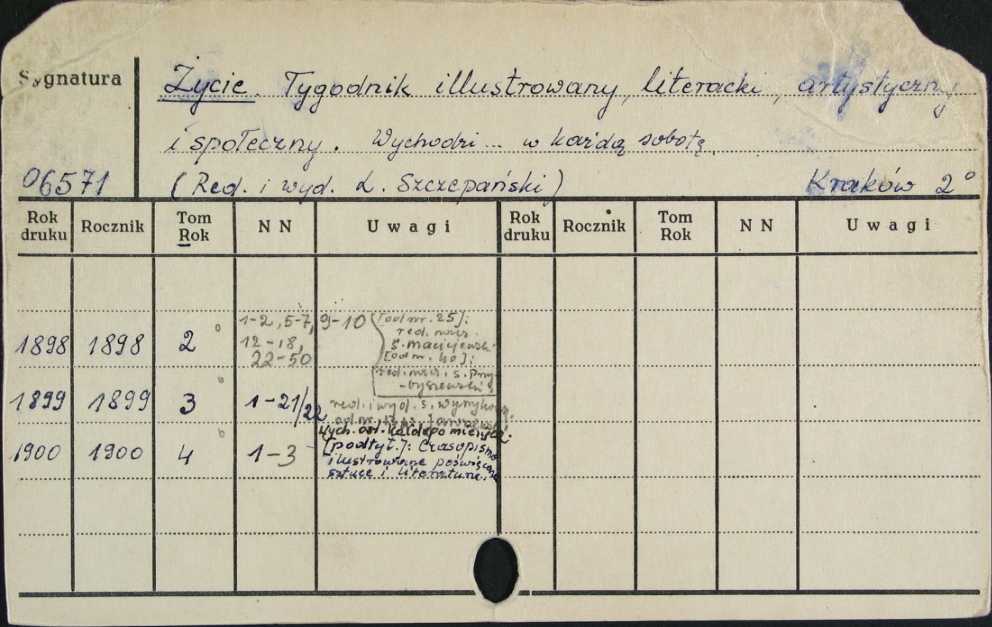 Sygnatura
Życie. Tygodnik illustrowany, literacki, artystyczny
i społeczny. Wychodzi... w każdą sobotę.
06571 (Red. i wyd. L. Szczepański) Kraków 2°
Rok druku Rocznik Tom Rok NN Uwagi Rok druku Rocznik Tom Rok NN Uwagi
1-2, 5-7, 9-10 [od nr. 25]:
red.
1898 1898 2 12-18, S. Maciejewski
22-50 [od nr. 40]:
S. Przy-
-byszewski
1899 1899 3 1-21/22 red. i wyd. S. Wyrzykowski
od nr.
Wych.
1900 1900 4 1-3 [podtyt.]: Czasopismo
ilustrowane poświęcone
sztuce i literaturze.